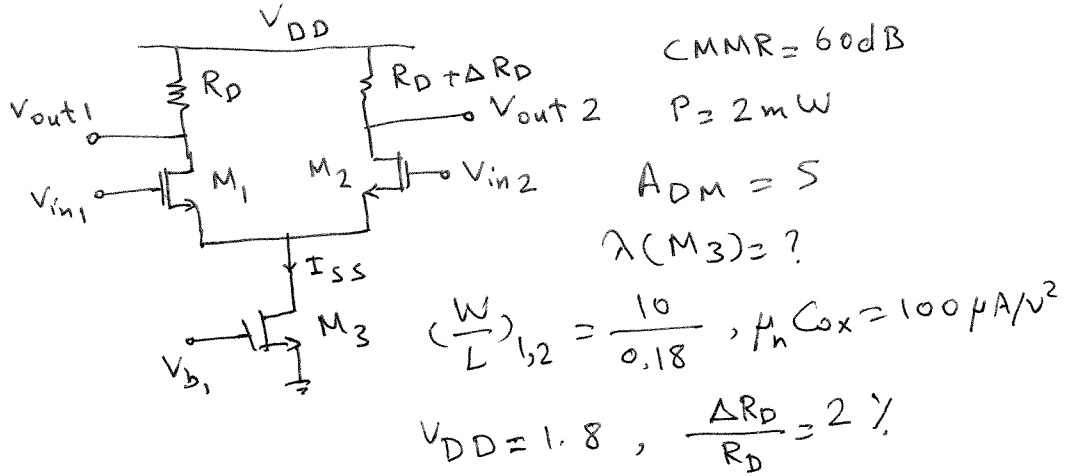 V DD
RD
RD + Δ RD
Vout 1
Vout 2
Vin1
M1
M2
Vin 2
ISS
M3
Vb1
CMMR = 60dB
P = 2 m W
ADM = 5
λ(M3) = ?
(W/L)1,2 = 10/0.18 , μn Cox = 100 μA/V²
VDD = 1.8 , ΔRD/RD = 2 %